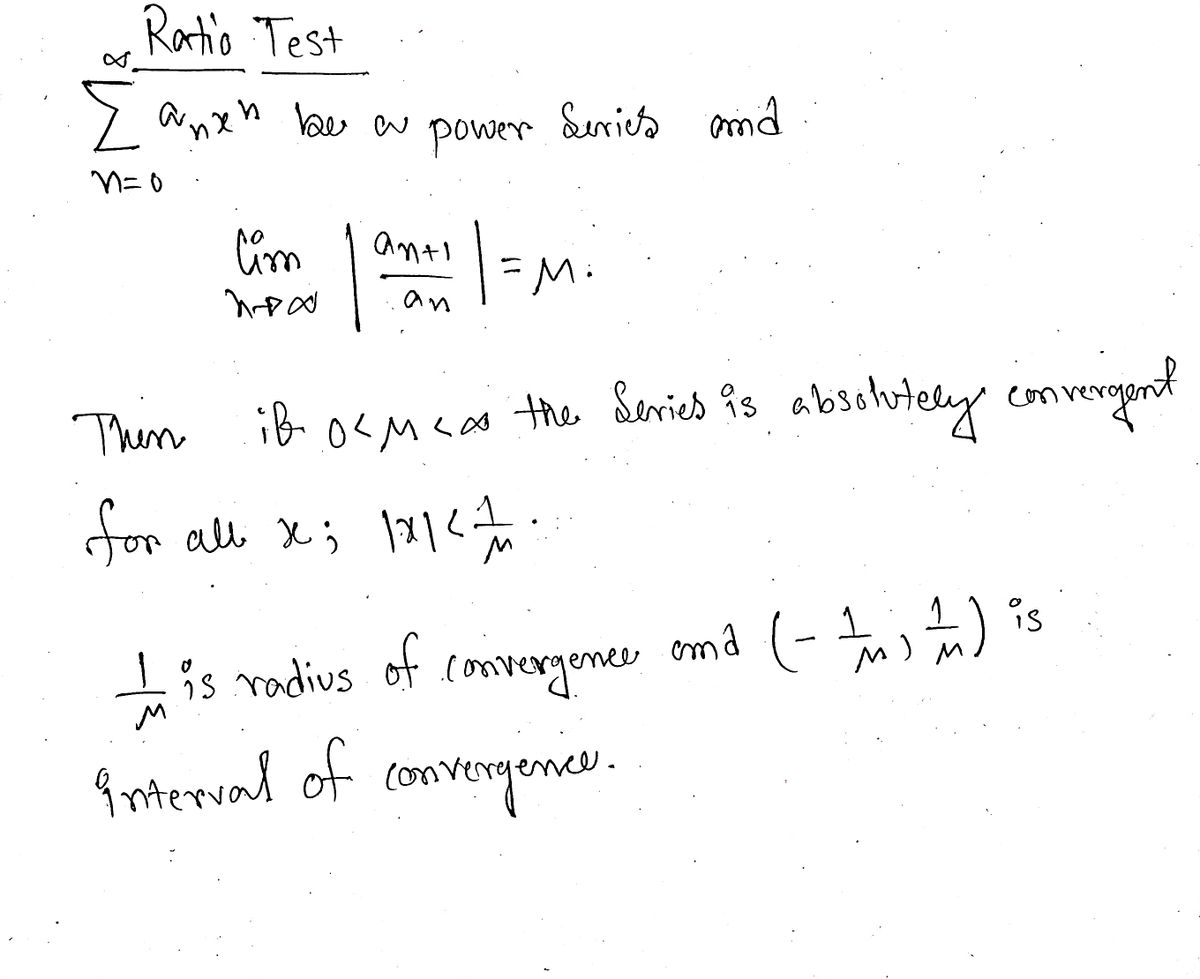 Ratio Test
∞
∑ aₙxⁿ be a power Series and
n=0
lim | aₙ₊₁ / aₙ | = μ.
n→∞
Then if 0<μ<∞ the Series is absolutely convergent
for all x; |x|<1/μ.
1/μ is radius of convergence and (-1/μ, 1/μ) is
interval of convergence.